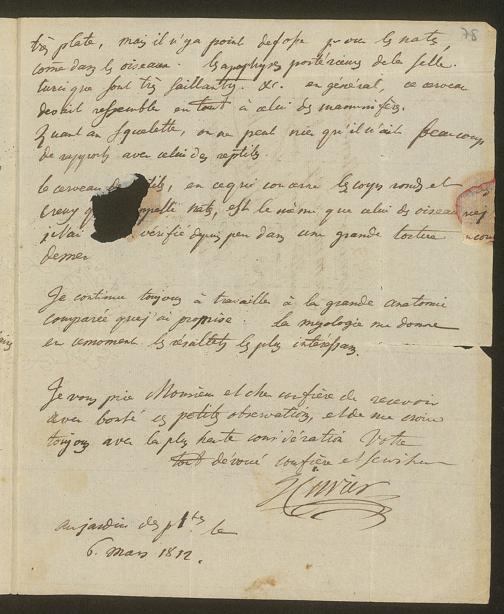 78
très plate, mais il n'y a point de fosse pour les nates,
come dans les oiseaux. les apophyses postérieures de la selle
turcique sont très saillantes. &c. en général, ce cerveau
devait ressembler en tout à celui des mammifères.
Quant au squelette, on ne peut nier qu'il n'ait beaucoup
de rapports avec celui des reptiles.
le cerveau de tils, en ce qui concerne les corps ronds et
creux q appelle nates, est le même que celui des oiseaux
je l'ai vérifié depuis peu dans une grande tortue
de mer
Je continue toujours à travailler à la grande anatomie
comparée que j'ai promise. La myologie me donne
en ce moment les résultats les plus intéressans.
Je vous prie Monsieur et cher confrère de recevoir
avec bonté ces petites observations, et de me croire
toujours avec la plus haute considération Votre
tout dévoué confrère et serviteur
G Cuvier
au jardin des ptes le
6 mars 1812.